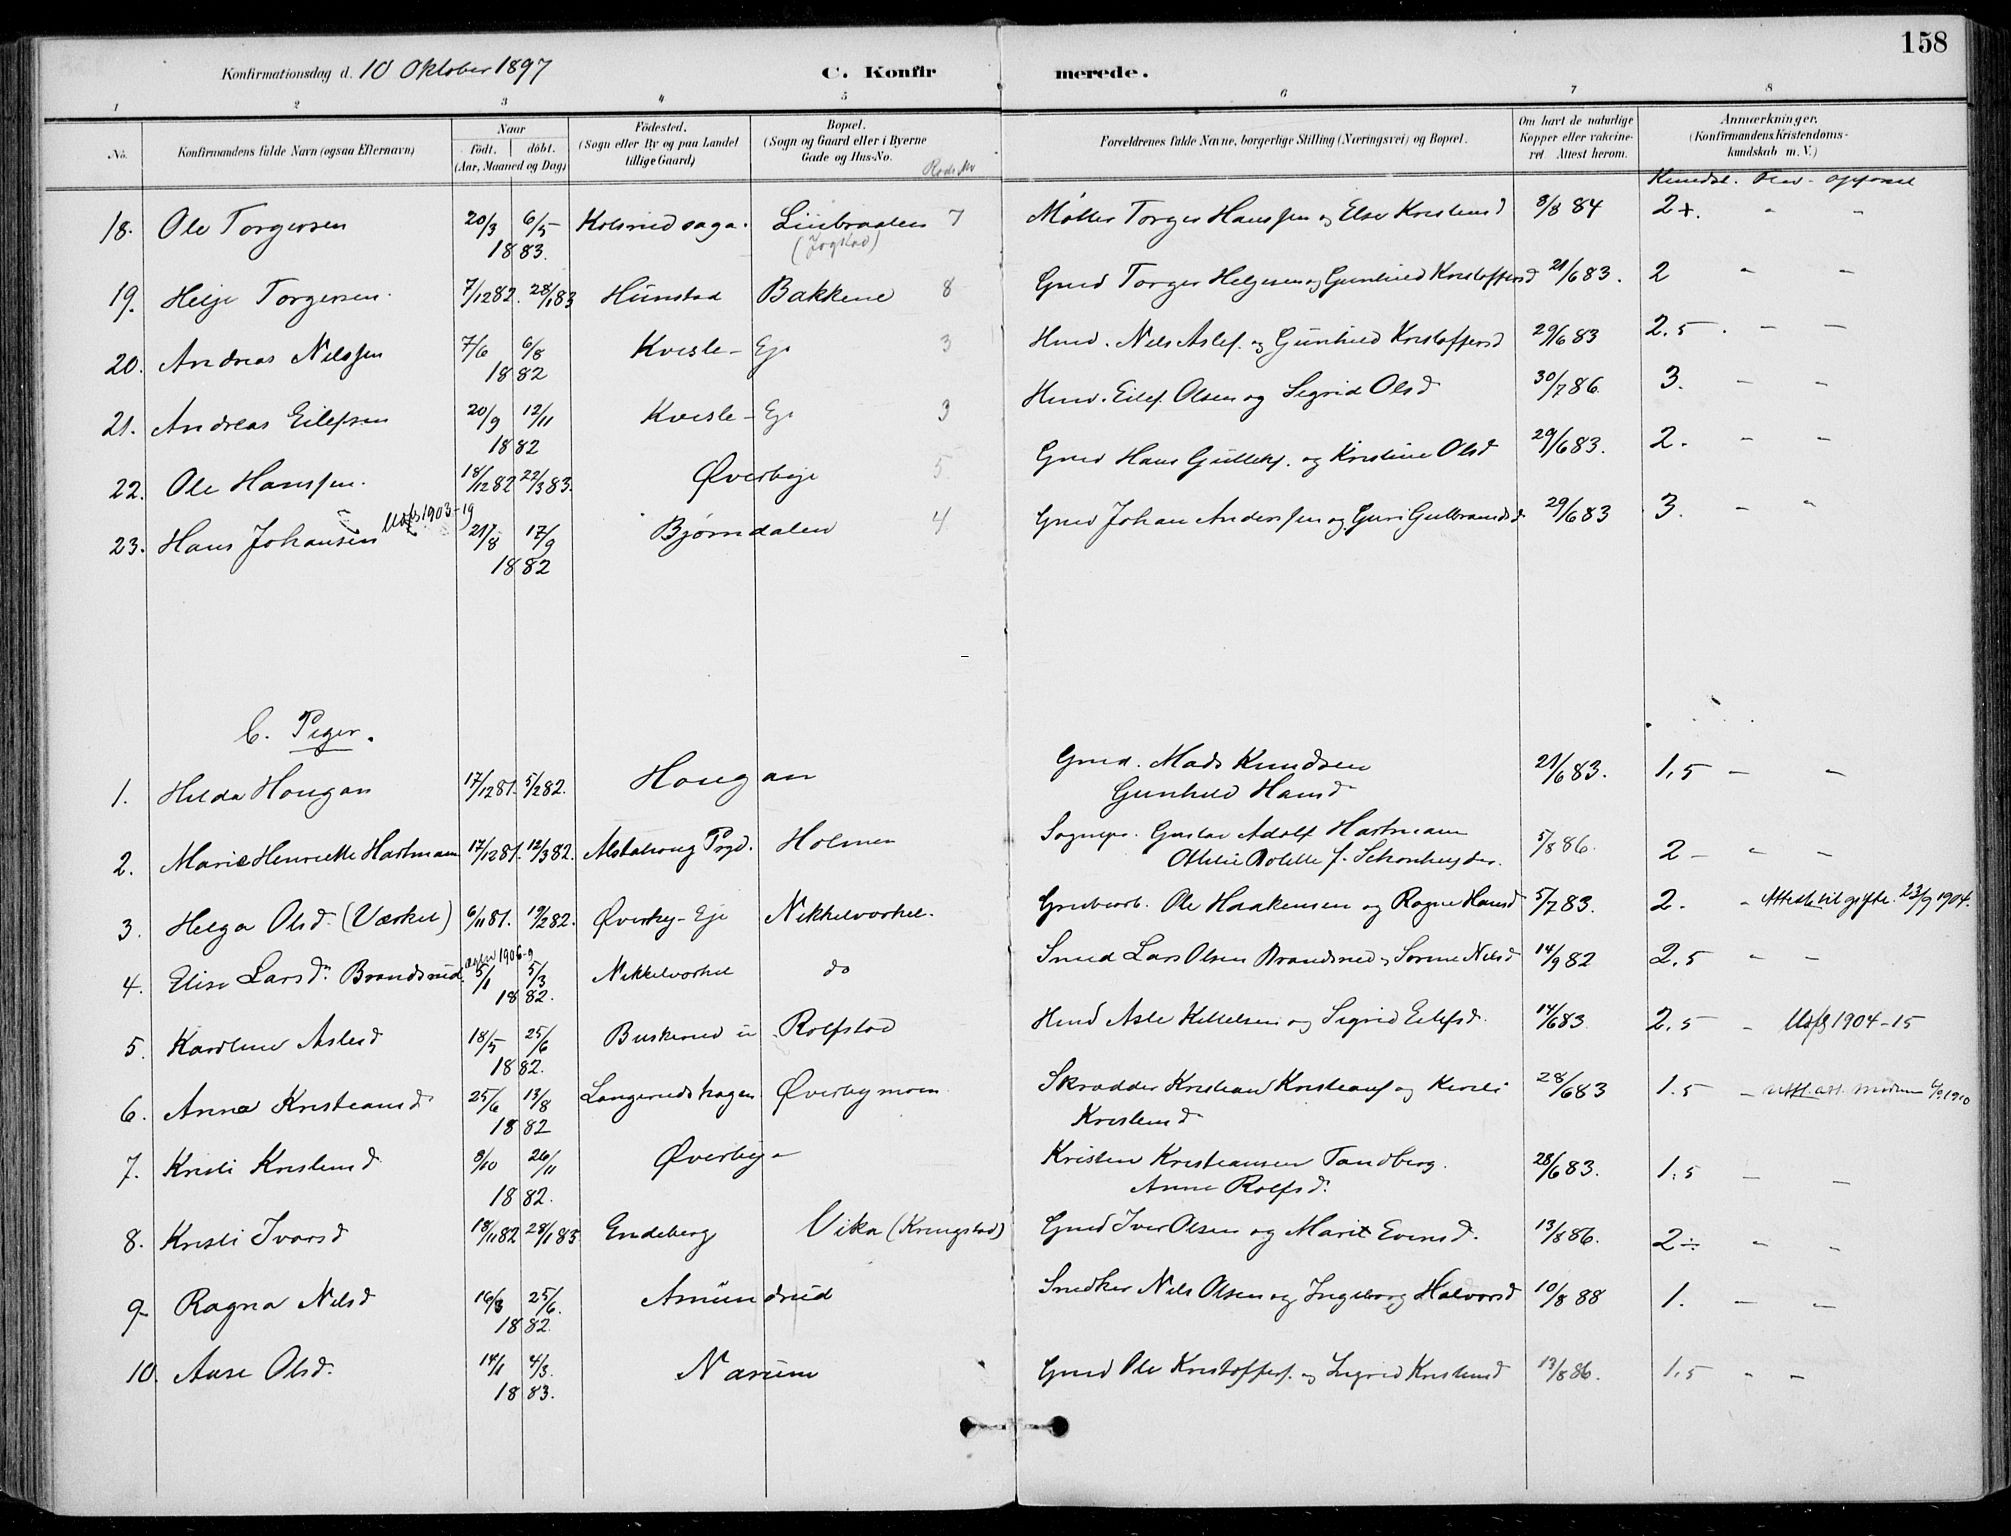 158
Konfirmationsdag d. 10 Oktober 1897 C. Konfirmerede.
1 2 3 4 5 6 7 8
No. Konfirmandens fulde Navn (ogsaa Efternavn) Naar født. døbt. (Aar, Maaned og Dag) Fødested. (Sogn eller By og paa Landet tillige Gaard) Bopæl. (Sogn og Gaard eller i Byerne Gade og Hus-No. Forældrenes fulde Navne, borgerlige Stilling (Næringsvei) og Bopæl. Om havt de naturlige Kopper eller vakcineret Attest herom. Anmærkninger. (Konfirmandens Kristendomskundskab m. V.)
Rods Nr
Kundsk.
18. Ole Torgersen 20/3 6/5 1883. Kolsrud saga. Linbraaten (Jogstad) 7 Møller Torger Hanssen og Else Kristensd 3/8 84 2+. " "
19. Helje Torgersen. 7/12 82. 28/1 83 Hunstad Bakkene 8 Gmd Torger Helgesen og Gunhild Kristoffersd 21/6 83. 2 " "
20. Andreas Nilssen 7/6 6/8 1882 Kvisle-Eje 3 Husd. Nils Aslef. og Gunhild Kristoffersd 29/6 83 2.5. - -
21. Andreas Eilefsen 20/9 12/11 1882 Kvisle-Eje 3 Husd. Eilef Olsen og Sigrid Olsd 30/7 86. 3. - -
22. Ole Hanssen. 18/12 82 22/3 83. Øverbye 5 Gmd Hans Gulleks. og Kristine Olsd 29/6 83. 2. - -
23. Hans Johansen 1903-19 21/8 17/9 1882 Bjørndalen 4 Gmd Johan Anderssen og Guri Gulbrandsd. 29/6 83 3. - "
C. Piger.
1. Hilda Hougan 17/12 81. 5/2 82. Hougan Gmd. Mads Knudsen 21/6 83. 1,5 - -
Gunhild Hansd
2. Marie Henriette Hartmann 17/12 81. 12/3 82. Alstahoug Prgd. Holmen Sognepr. Gustav Adolf Hartmann 5/8 86. 2 - " -
Ottilie Bolette f. Schønheyder.
3. Helga Olsd. (Værket) 6/11 81. 19/2 82. Øverby-Eje Nikkelværket. Grubearb. Ole Haakensen og Ragne Hansd 5/7 83. 2. " Attest til gifte. 23/9 1904.
4. Elise Larsd. Brandsrud. 1906-9 5/1 5/3 1882. Nikkelværket do Smed Lars Olsen Brandsrud og Sorine Nilsd 14/9 82 2.5 - -
5. Karoline Aslesd 18/5 25/6 1882. Buskerud ie Rolfstad Husd Asle Kittelsen og Sigrid Eilefsd. 14/6 83. 2.5 - 1904-15
6. Anne Kristiansd 25/6 13/8 1882 Langerudshagen Øverbymoen Skrædder Kristian Kristians. og Kirsti 28/6 83 1.5 -
Kristensd
7. Kristi Kristensd 3/10 26/11 1882. Øverbye Kristen Kristiansen Tandberg. 28/6 83. 1.5 - -
Anne Rolfsd.
8. Kristi Ivarsd 18/11 82 28/1 83. Endeberg Vika (Kringstad) Gmd Iver Olsen og Marit Evensd. 13/8 86. 2÷ " "
9. Ragna Nilsd 16/3 25/6. 1882. Amundrud Snedker Nils Olsen og Ingeborg Halvorsd 10/8 88 1. - -
10. Aase Olsd. 14/1 4/3. 1883. Narum Gmd Ole Kristoffers. og Sigrid Kristensd 13/8 86. 1,5 " -